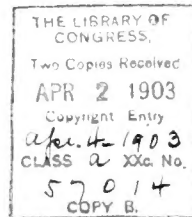 THE LIBRARY OF
CONGRESS,
Two Copies Received
APR 2 1903
Copyright Entry
Apr. 4-1903
CLASS a XXc. No.
57014
COPY B.